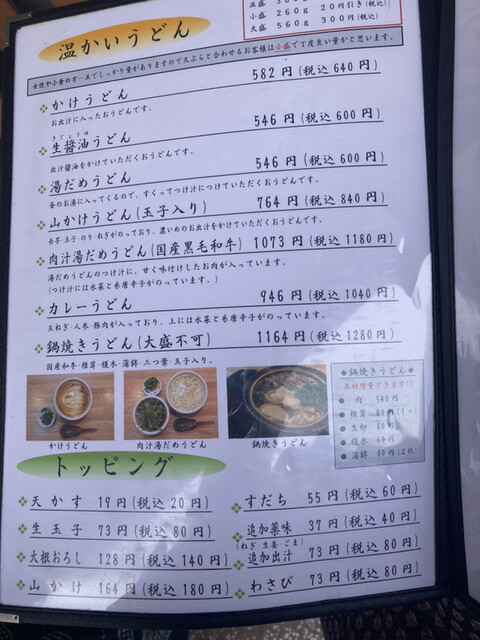 小盛 260g 20円引き(税込)
大盛 560g 300円(税込)
温かいうどん
582円(税込640円)
かけうどん
お出汁に入ったおうどんです。
きじょうゆ
生醤油うどん 546円(税込600円)
出汁醤油をかけていただくおうどんです。
湯だめうどん 546円(税込600円)
釜のお湯に入ってくるので、すくってつけ汁につけていただくおうどんです。
山かけうどん(玉子入り) 764円(税込840円)
長芋・玉子・のり・ねぎがのっており、濃いめのお出汁をかけていただくおうどんです。
肉汁湯だめうどん(国産黒毛和牛) 1073円(税込1180円)
湯だめうどんのつけ汁に、甘く味付けしたお肉が入っています。
(つけ汁には水菜と糸唐辛子がのっています。)
カレーうどん 946円(税込1040円)
玉ねぎ・人参・豚肉が入っており、上には水菜と糸唐辛子がのっています。
鍋焼きうどん(大盛不可) 1164円(税込1280円)
国産和牛・椎茸・榎水・蒲鉾・三つ葉・玉子入り。
かけうどん
肉汁湯だめうどん
鍋焼きうどん
◆鍋焼きうどん◆
具材増量できます!!
● 肉 540円
● 椎茸
● 生卵 80円
● 蒲鉾 80円(2枚)
トッピング
天かす 19円(税込20円)
生玉子 73円(税込80円)
大根おろし 128円(税込140円)
山かけ 164円(税込180円)
すだち 55円(税込60円)
追加薬味 37円(税込40円)
(ねぎ・生姜・ごま)
追加出汁 73円(税込80円)
わさび 73円(税込80円)